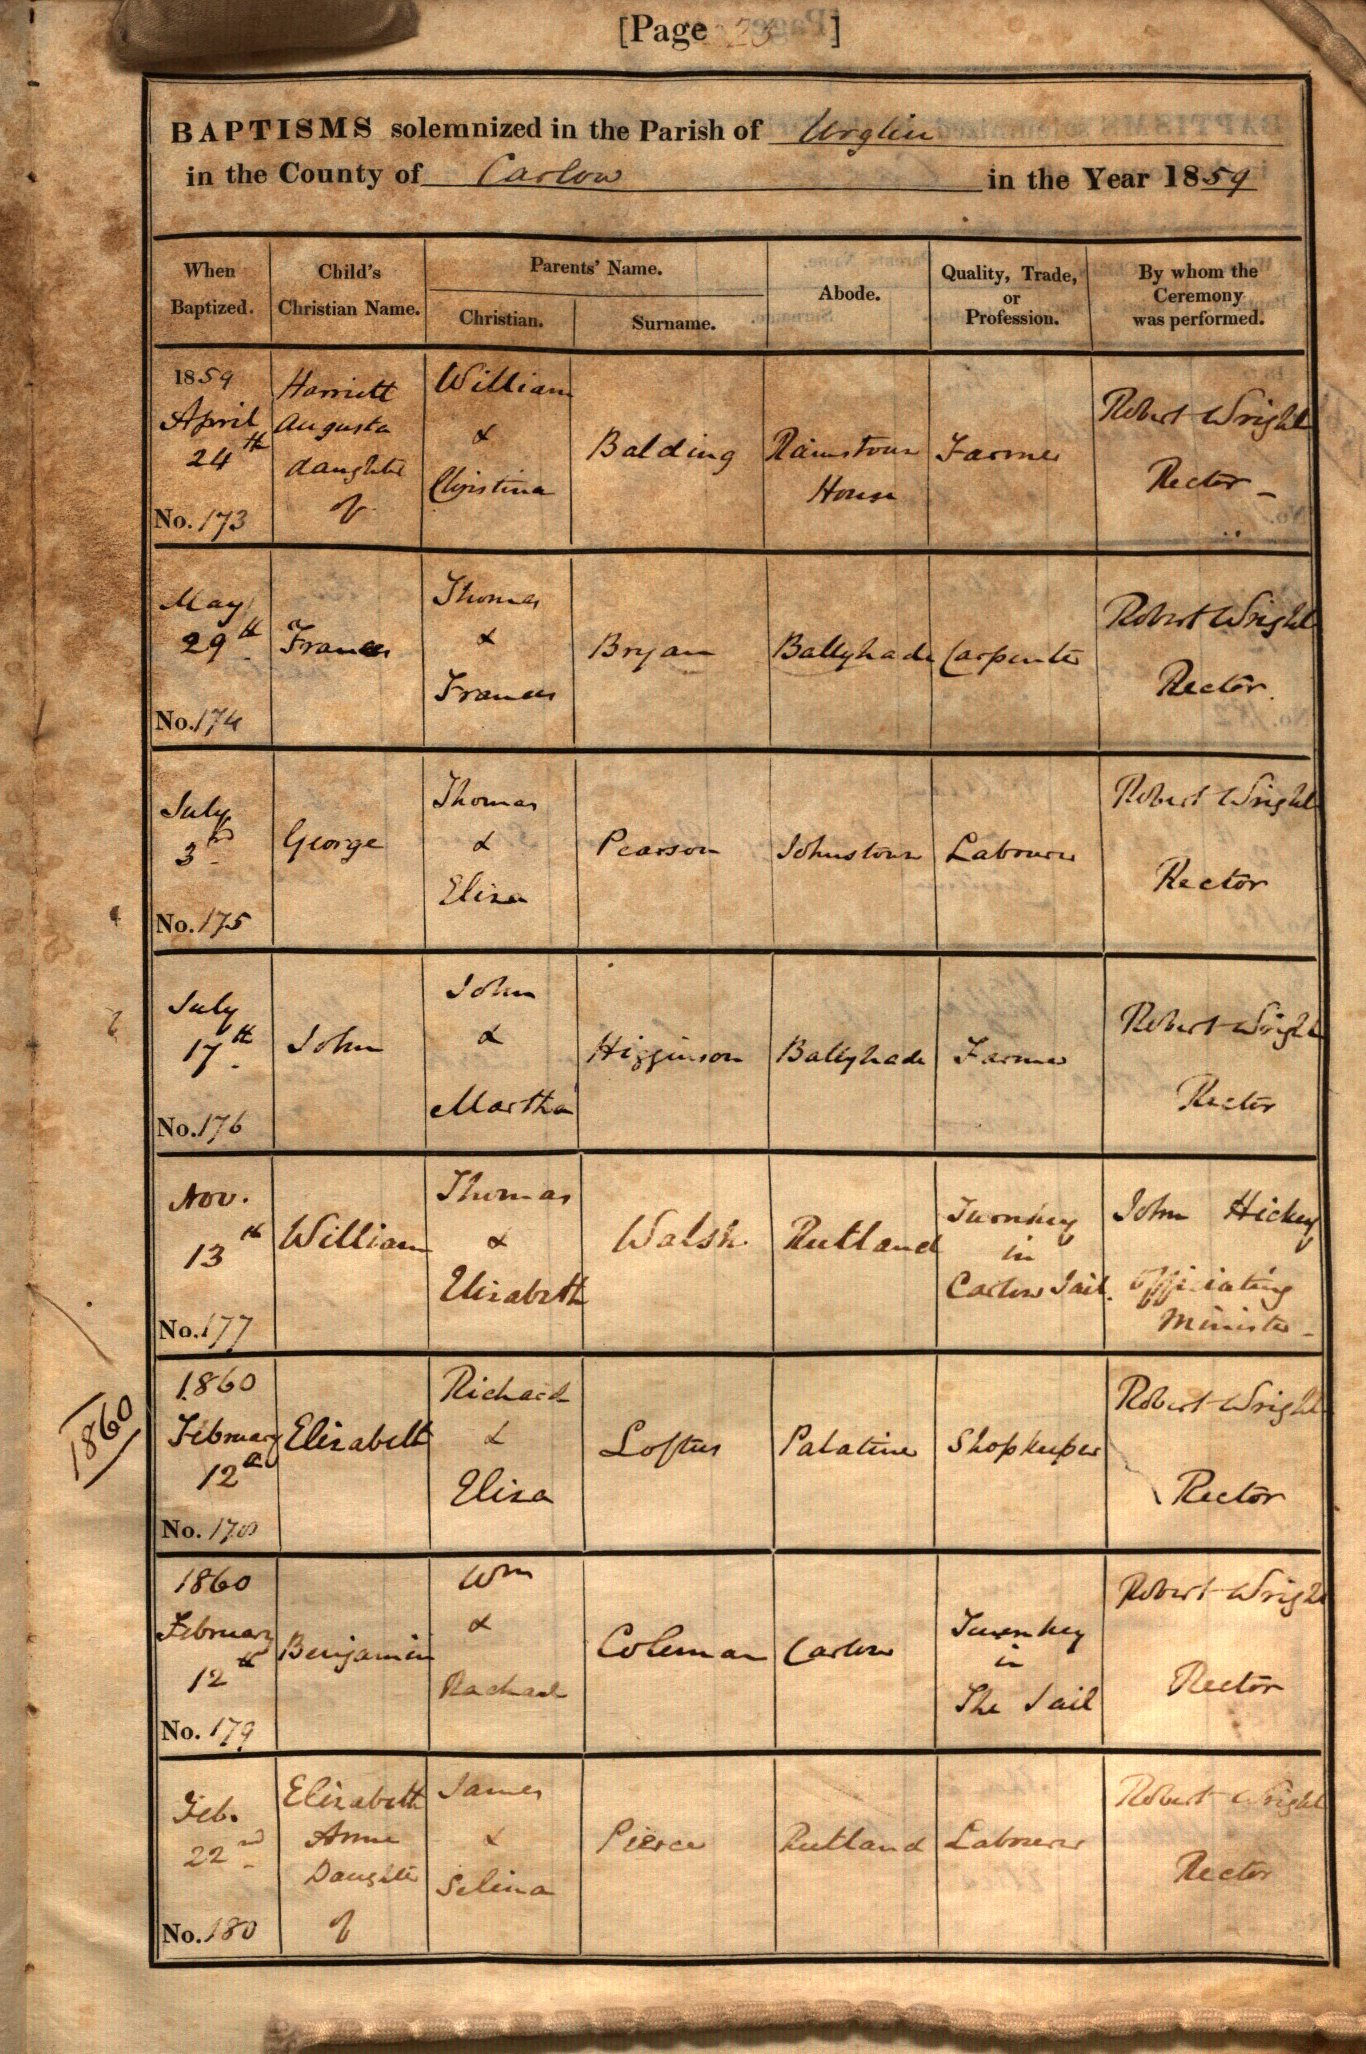 [Page 23 ]
BAPTISMS solemnized in the Parish of Urglin
in the County of Carlow in the Year 1859
When Baptized.
Child's Christian Name.
Parents' Name.
Christian.
Surname.
Abode.
Quality, Trade, or Profession.
By whom the Ceremony was performed.
1859
April
24th
No. 173
Harriett
Augusta
daughter
of
William
&
Christina
Balding
Rainstown
House
Farmer
Robert Wright
Rector
May
29th
No. 174
Frances
Thomas
&
Frances
Bryan
Ballyhade
Carpenter
Robert Wright
Rector
July
3rd
No. 175
George
Thomas
&
Eliza
Pearson
Johnstown
Labourer
Robert Wright
Rector
July
17th
No. 176
John
John
&
Martha
Higginson
Ballyhade
Farmer
Robert Wright
Rector
Nov.
13th
No. 177
William
Thomas
&
Elizabeth
Walsh
Rutland
Turnkey
in
Carlow Jail.
John Hickey
Officiating
Minister
1860
1860
February
12th
No. 178
Elizabeth
Richard
&
Eliza
Loftus
Palatine
Shopkeeper
Robert Wright
Rector
1860
February
12th
No. 179
Benjamin
Wm
&
Rachael
Coleman
Carlow
Turnkey
in
The Jail
Robert Wright
Rector
Feb.
22nd
No. 180
Elizabeth
Anne
Daughter
of
James
&
Selina
Pierce
Rutland
Labourer
Robert Wright
Rector